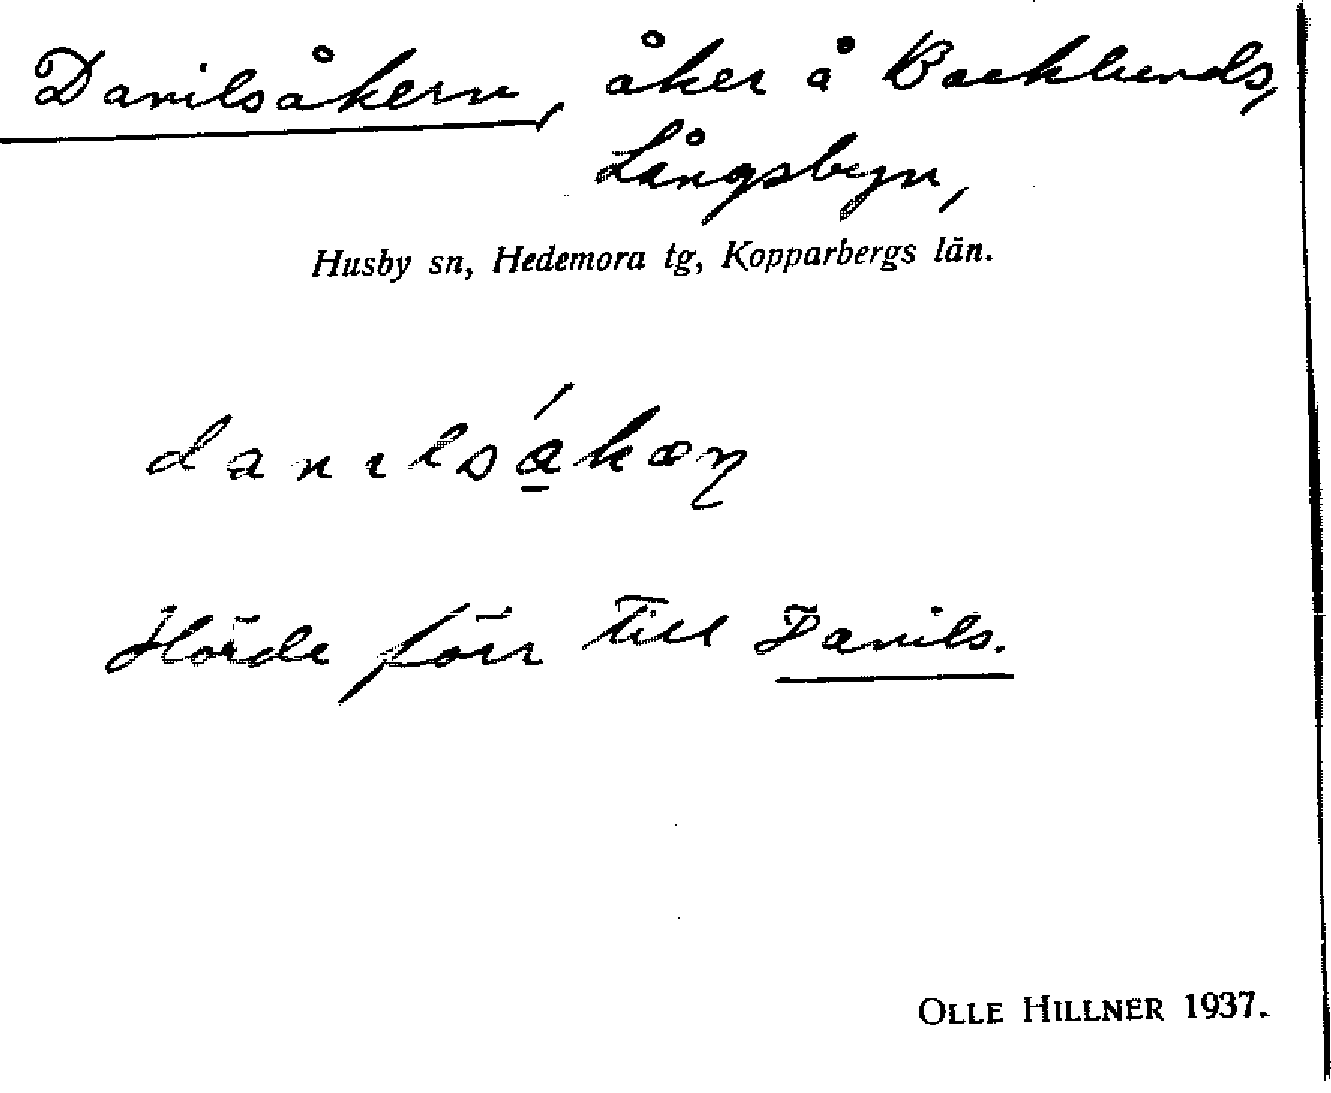 Danilsåkern, åker å Backlunds,
Långsbyn,
Husby sn, Hedemora tg, Kopparbergs län.
Hörde förr till Danils.
OLLE HILLNER 1937.